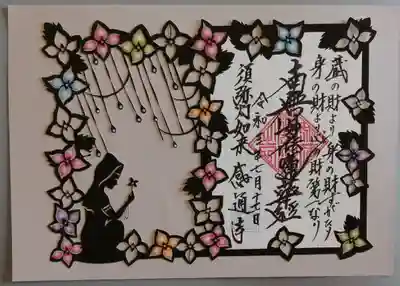 蔵の財より身の財すぐれたり
身の財より心の財第一なり
南無妙法蓮華経
令和 年七月十七日
須弥 如来 感通寺